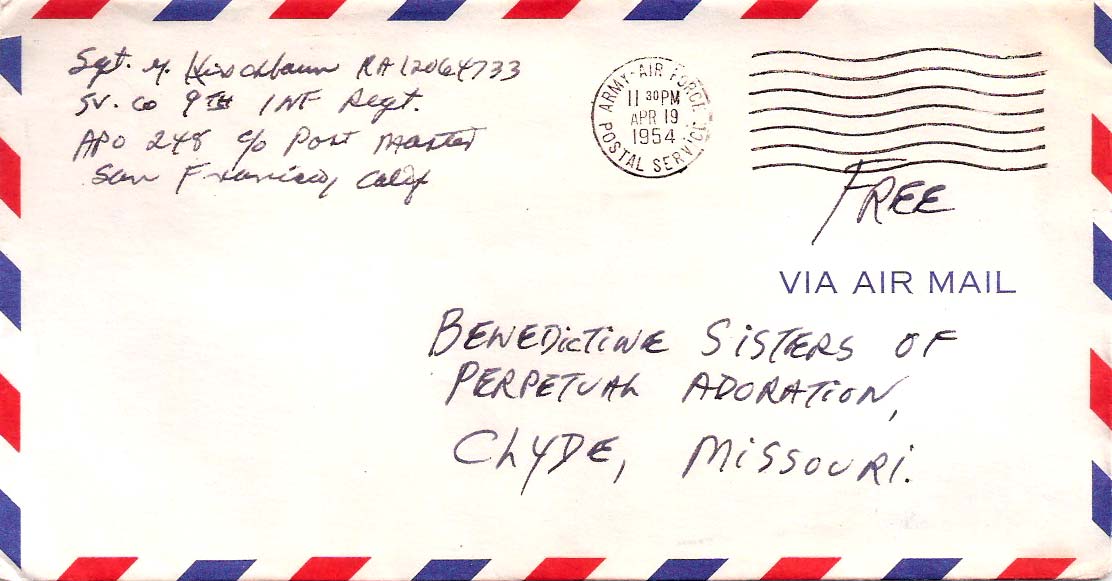 Sgt. M. Hirschbaum RA12064733
SV. Co 9TH INF Regt.
APO 248 c/o Post Master
San Francisco, Calif
ARMY-AIR FORCE
POSTAL SERVICE
11 30PM
APR 19
1954
FREE
VIA AIR MAIL
BENEDICTINE SISTERS OF
PERPETUAL ADORATION,
CLYDE, MISSOURI.